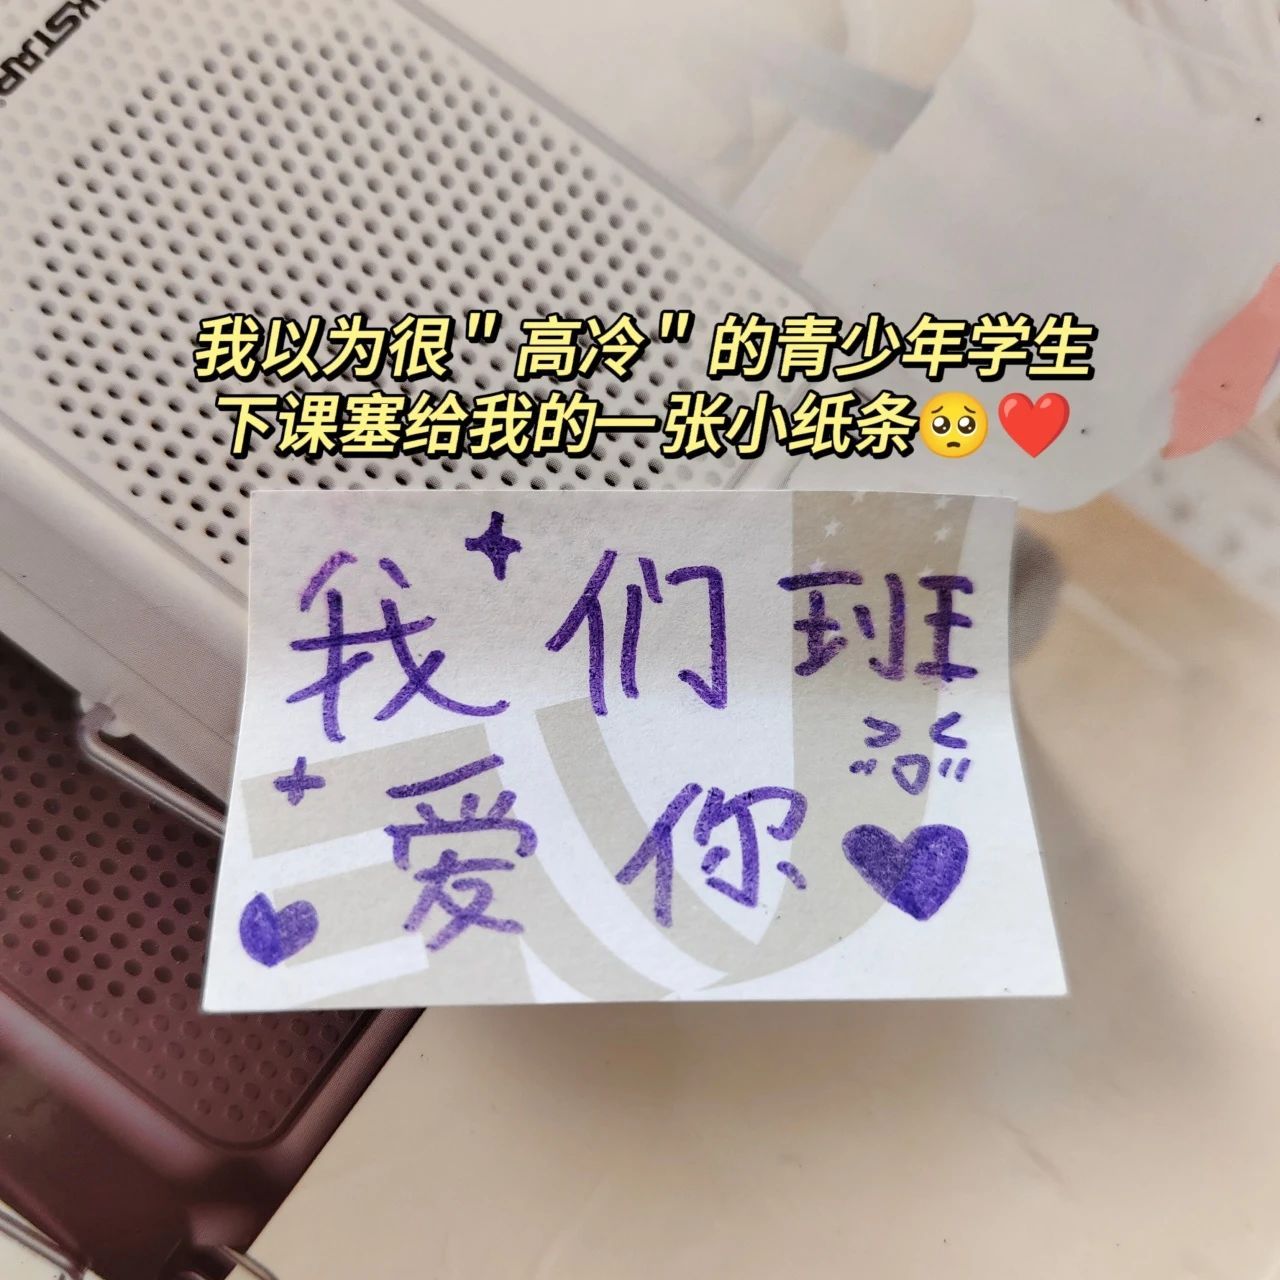 我以为很"高冷"的青少年学生
下课塞给我的一张小纸条🥺❤️
我们班
爱你